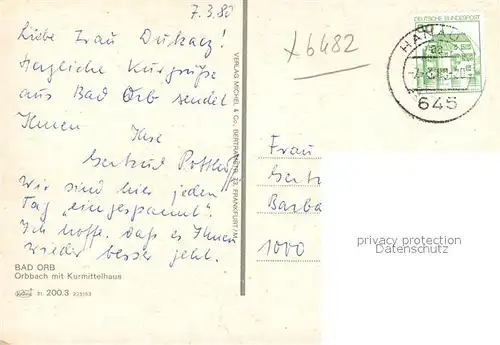 7.3.80
Liebe Frau Dukacz!
Herzliche Kurgrüße
aus Bad Orb sendet
Ihnen Ihre
Gertrud
Wir sind hier jeden
Tag „eingespannt".
Ich hoffe, daß es Ihnen
wieder besser geht.
BAD ORB
Orbbach mit Kurmittelhaus
21 200.3
VERLAG MICHEL & Co., FRANKFURT/M.
x6482
DEUTSCHE BUNDESPOST
HANAU
645
Frau
Gert
Barba
1000
privacy protection
Datenschutz